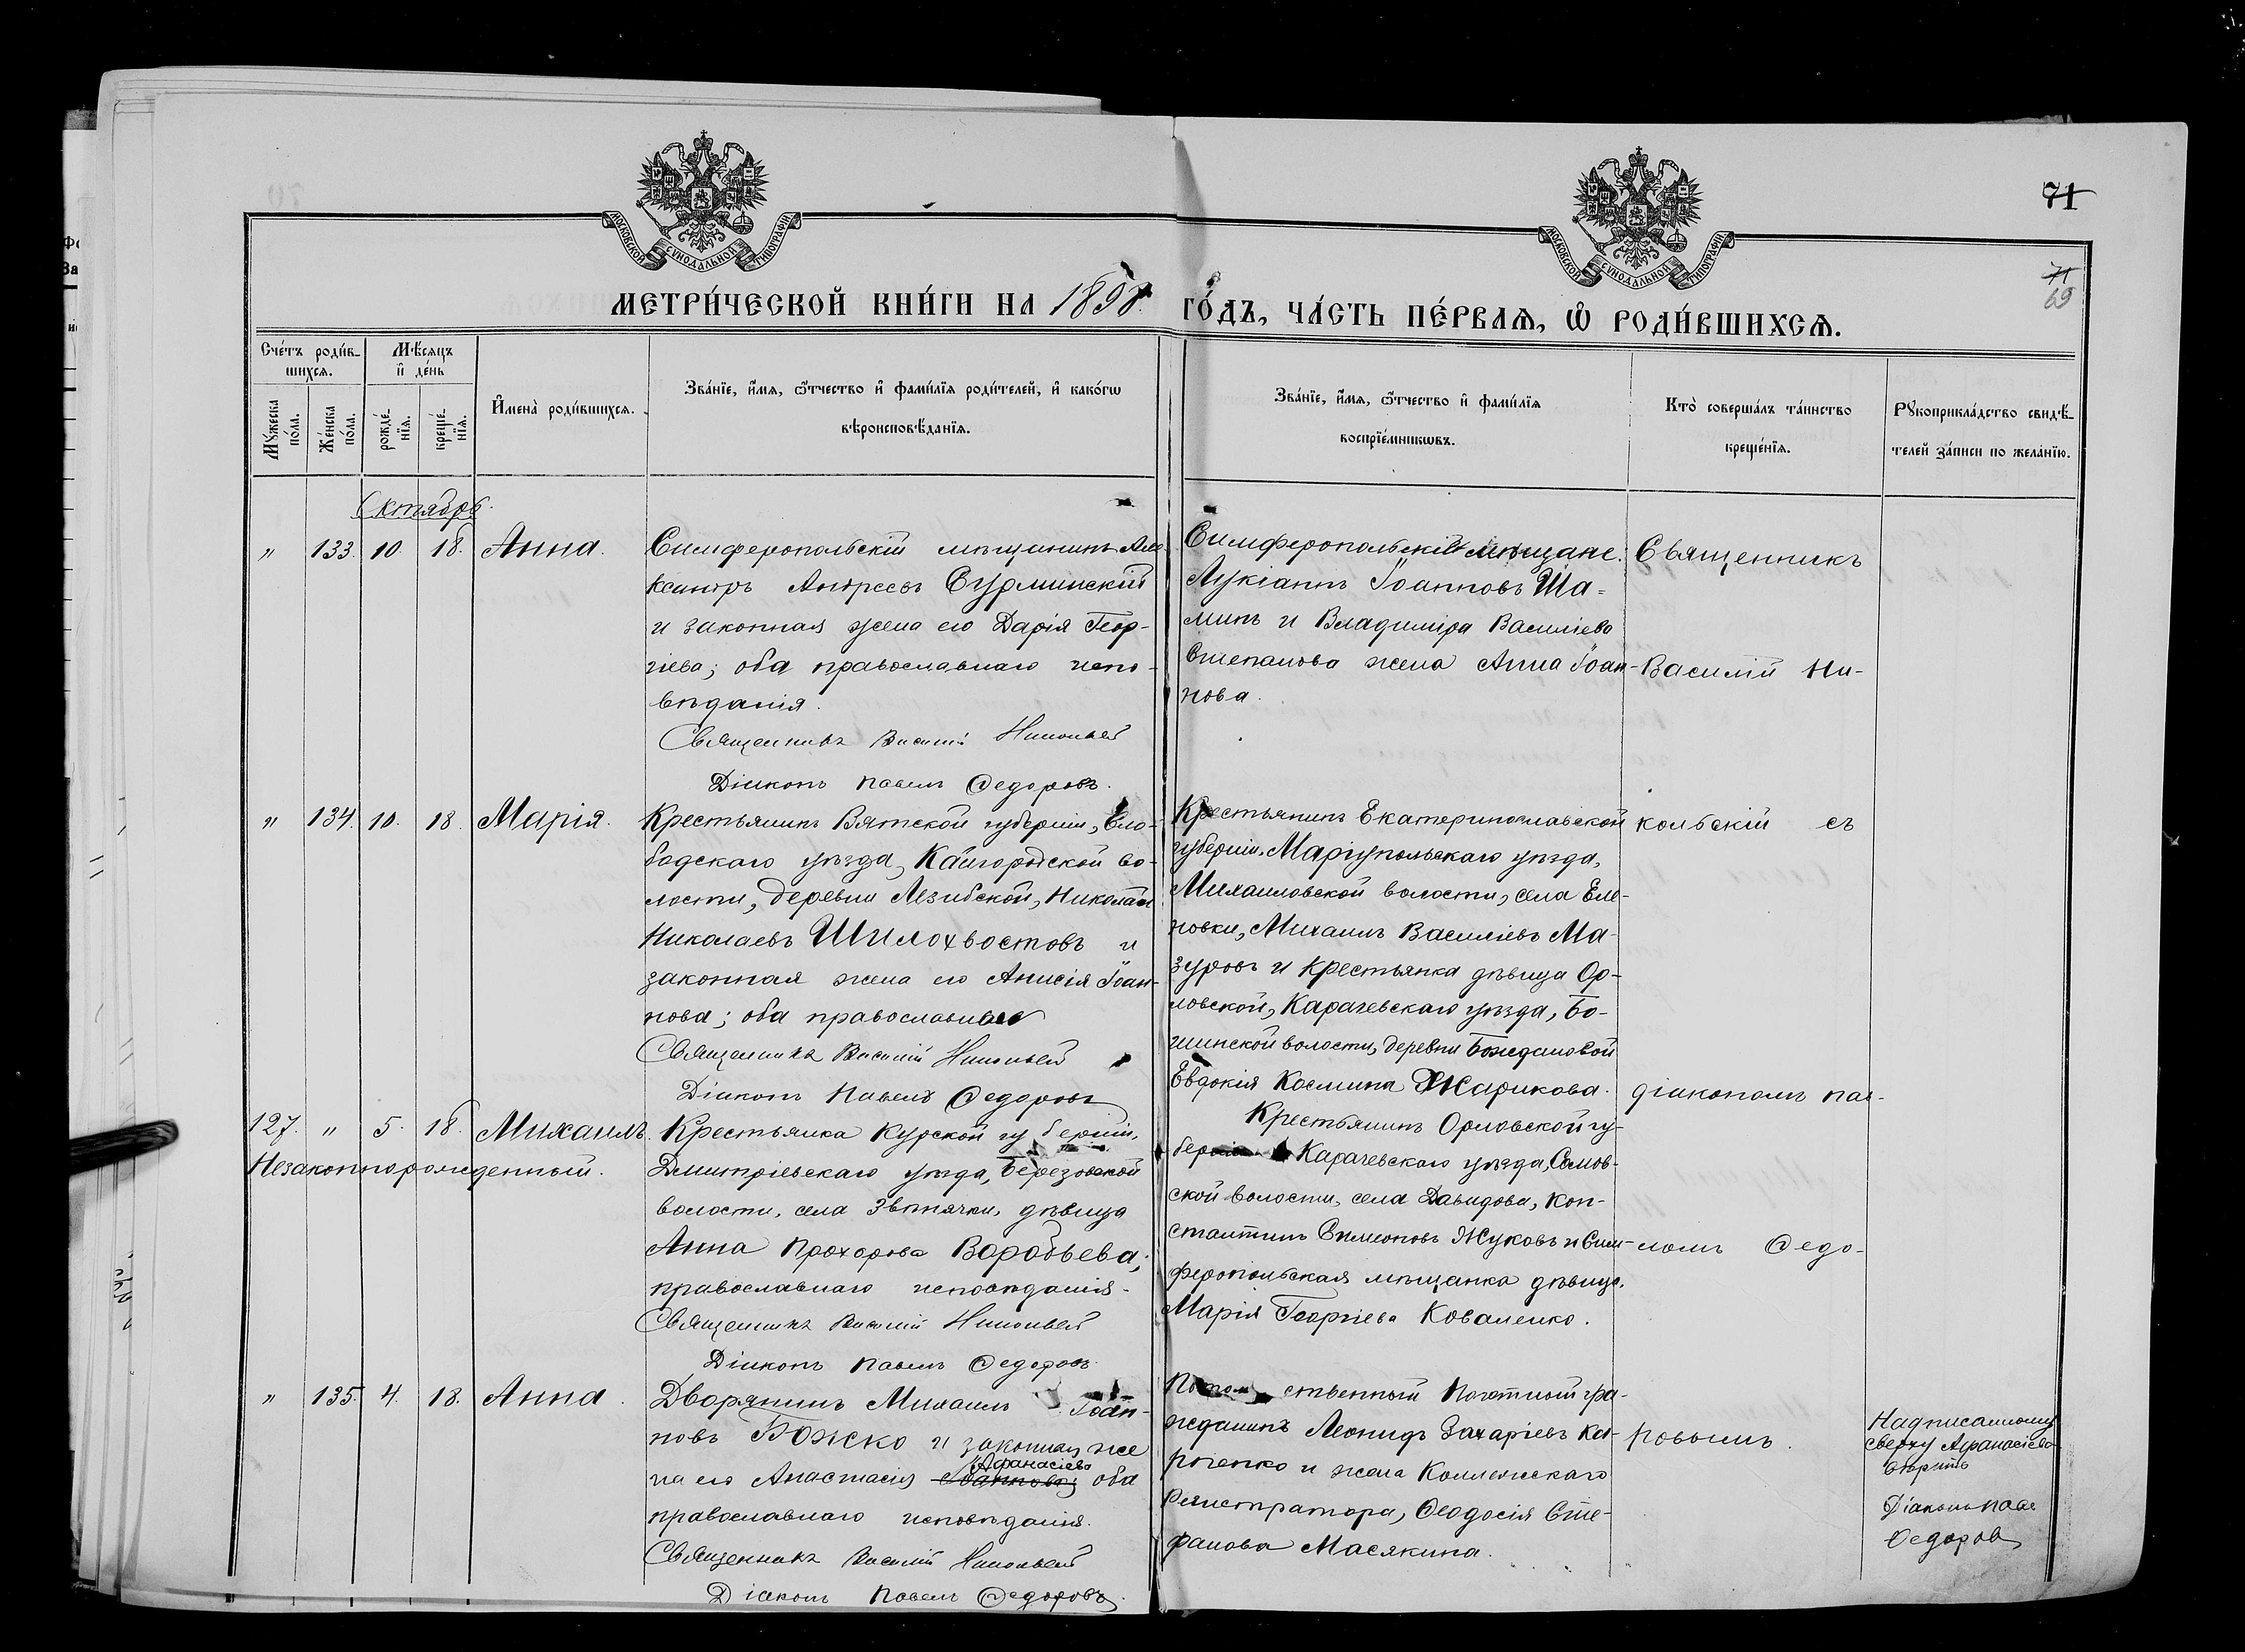 71
71
69
МОСКОВСКОЙ СѴНОДАЛЬНОЙ ТИПОГРАФІИ
МОСКОВСКОЙ СѴНОДАЛЬНОЙ ТИПОГРАФІИ
МЕТРИ́ЧЕСКОЙ КНИ́ГИ НА 1898 ГО́ДЪ, ЧА́СТЬ ПЕ́РВАѦ, Ѡ҆ РОДИ́ВШИХСѦ.
Сче́тъ роди́в-
шихсѧ.
Мꙋ́жеска по́ла.
Же́нска по́ла.
Мѣ́сѧцъ
и҆ де́нь
рожде́-
нїѧ.
креще́-
нїѧ.
И҆мена̀ роди́вшихсѧ.
Зва́нїе, и҆́мѧ, ѻ҆́тчество и҆ фами́лїѧ роди́телей, и҆ како́гѡ
вѣроисповѣ́данїѧ.
Зва́нїе, и҆́мѧ, ѻ҆́тчество и҆ фами́лїѧ
воспрїе́мникѡвъ.
Кто̀ соверша́лъ та́инство
креще́нїѧ.
Рꙋкоприкла́дство свидѣ́-
телей за́писи по жела́нїю.
Октябрь.
" 133. 10. 18. Анна.
Симферопольскій мѣщанинъ Але-
ксандръ Андреевъ Сурминскій
и законная жена его Дарія Геор-
гіева; оба православнаго испо-
вѣданія.
Священникъ Василій Никольскій
Діаконъ Павелъ Ѳедоровъ.
Симферопольскіе мѣщане:
Лукіанъ Іоанновъ Ша-
минъ и Владиміра Василіева
Степанова жена Анна Іоан-
нова.
Священникъ
Василій Ни-
" 134. 10. 18. Марія.
Крестьянинъ Вятской губерніи, Сло-
бодскаго уѣзда, Кайгородской во-
лости, деревни Лезибской, Николай
Николаевъ Шилохвостовъ и
законная жена его Анисія Іоан-
нова; оба православные
Священникъ Василій Никольскій
Діаконъ Павелъ Ѳедоровъ
Крестьянинъ Екатеринославской
губерніи, Маріупольскаго уѣзда,
Михайловской волости, села Еле-
новки, Михаилъ Василіевъ Ма-
зуровъ и крестьянка дѣвица Ор-
ловской, Карачевскаго уѣзда, Бо-
шинской волости, деревни Бождановой
Евдокія Космина Жарикова.
кольскій съ
діакономъ Пав-
127. " 5. 18. Михаилъ.
Незаконнорожденный.
Крестьянка Курской губерніи,
Дмитріевскаго уѣзда, Березовской
волости, села Звѣнячки, дѣвица
Анна Прохорова Воробьева;
православнаго исповѣданія.
Священникъ Василій Никольскій
Діаконъ Павелъ Ѳедоровъ.
Крестьянинъ Орловской гу-
берніи Карачевскаго уѣзда, Самов-
ской волости, села Давидова, Кон-
стантинъ Симеоновъ Жуковъ и Сим-
феропольская мѣщанка дѣвица
Марія Георгіева Коваленко.
ломъ Ѳедо-
" 135. 4. 18. Анна.
Дворянинъ Михаилъ Іоан-
новъ Божко и законная же
Афанасіева
на его Анастасія Іоаннова; оба
православнаго исповѣданія.
Священникъ Василій Никольскій
Діаконъ Павелъ Ѳедоровъ.
Потомственный почетный гра-
жданинъ Леонидъ Захаріевъ Ка-
рпенко и жена Коллежскаго
Регистратора, Ѳеодосія Сте-
фанова Масякина.
ровымъ.
Надписанному
сверху Афанасіева
вѣрить
Діаконъ Паве
Ѳедоров